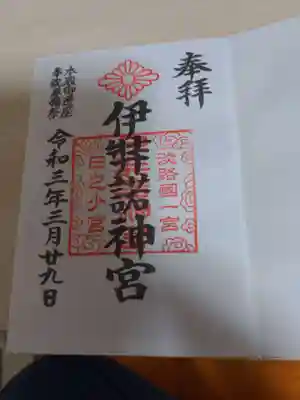 奉拝
淡路國一宮
伊弉諾神宮
日之小宮
本殿御遷座
令和三年三月廿九日